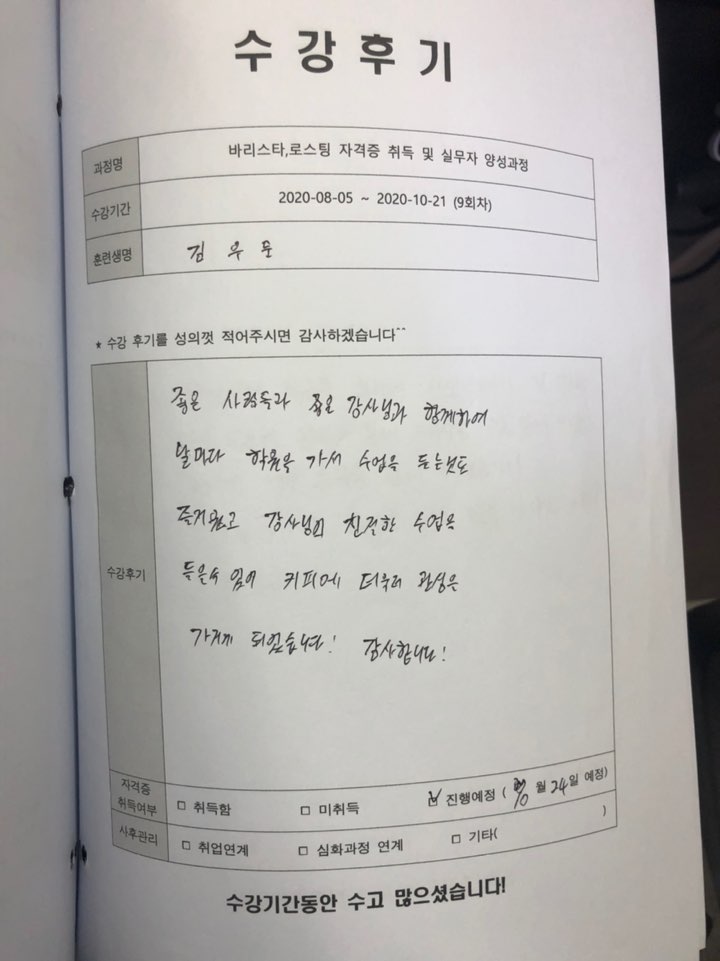 수강후기
과정명 바리스타,로스팅 자격증 취득 및 실무자 양성과정
수강기간 2020-08-05 ~ 2020-10-21 (9회차)
훈련생명 김우문
* 수강 후기를 성의껏 적어주시면 감사하겠습니다^^
좋은 사람들과 좋은 강사님과 함께하여
날마다 학원을 가서 수업을 듣는것도
수강후기
즐거웠고 강사님의 친절한 수업을
들을수 있어 커피에 더욱더 관심을
가지게 되었습니다! 감사합니다!
자격증 취득여부 □ 취득함 □ 미취득 ☑ 진행예정 ( 월 24일 예정)
사후관리 □ 취업연계 □ 심화과정 연계 □ 기타( )
수강기간동안 수고 많으셨습니다!